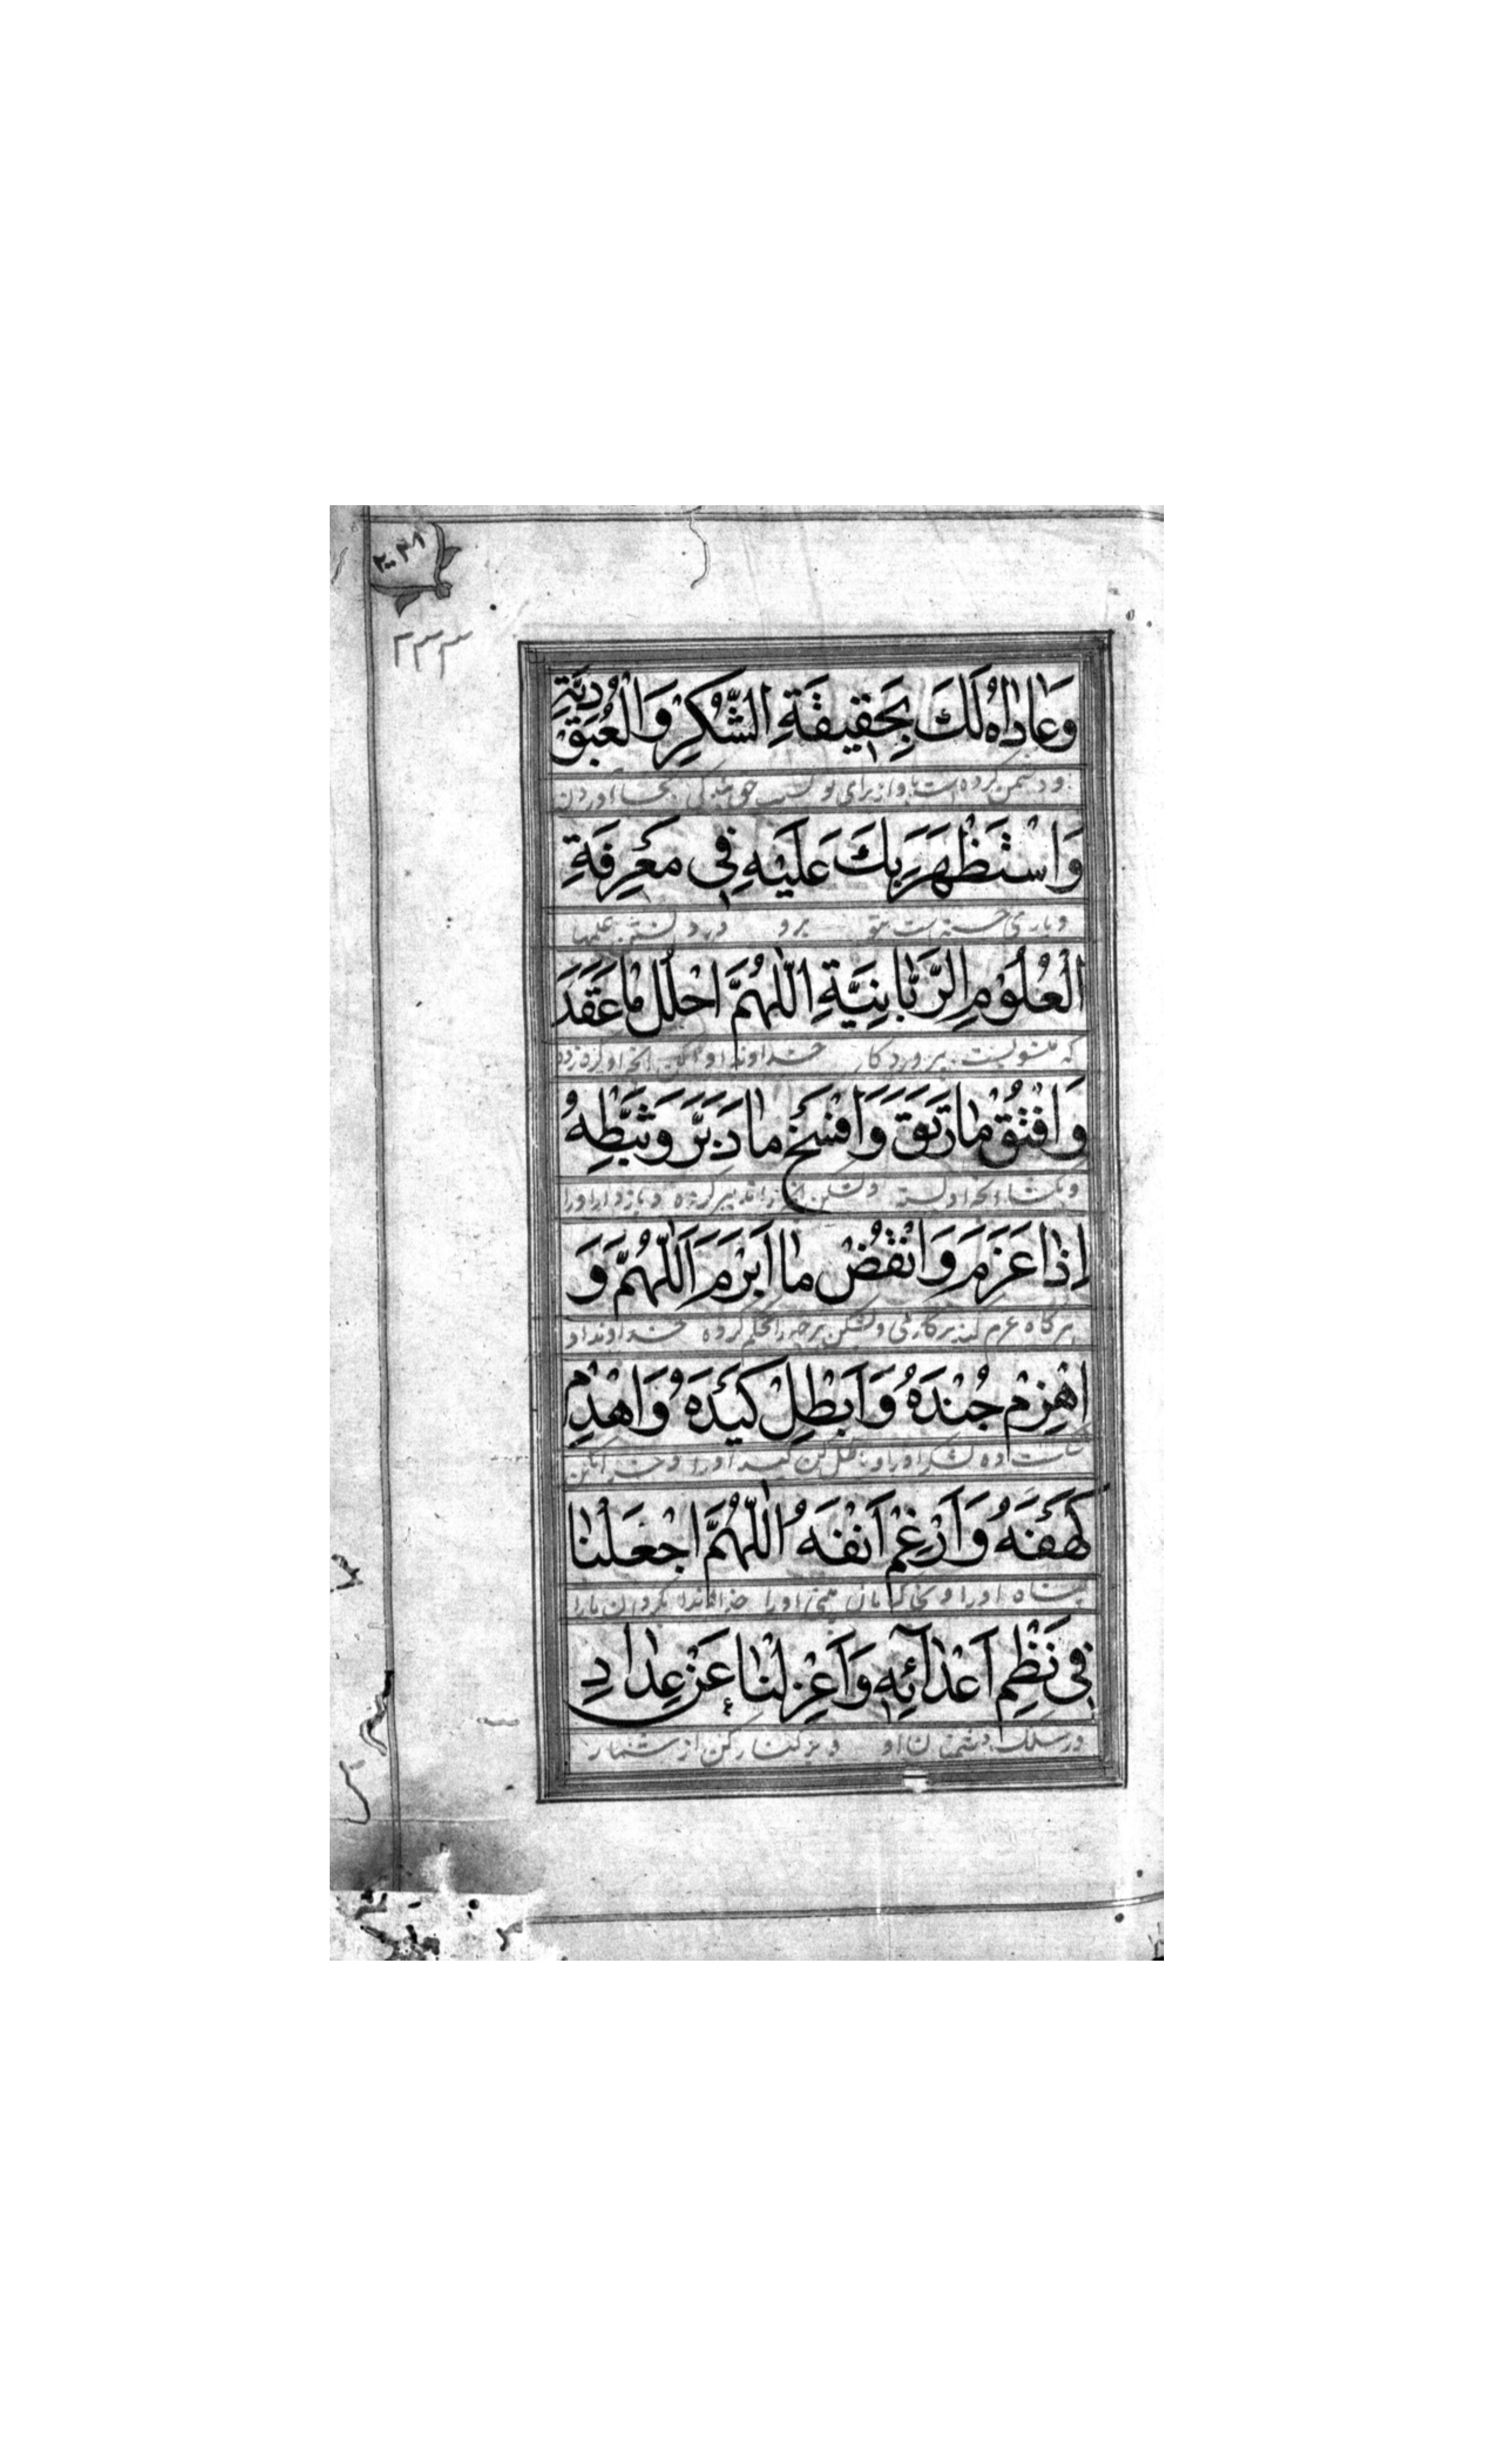 ٢٠٤١
٢٣٣
وَعَادٰاهُ لَكَ بِحَقِيقَةِ الشُّكْرِ وَالْعُبُودِيَّةِ
ودشمن کرده است باو از برای تو بجا آوردن
وَاسْتَظْهَرَ بِكَ عَلَيْهِ فِي مَعْرِفَةِ
ویاری جسته است بتو برو در دانستن علمها
الْعُلُومِ الرَّبّٰانِيَّةِ اَللّٰهُمَّ احْلُلْ مٰا عَقَدَ
که منسوبست بپروردکار خداوندا وا کن انچه او کره زده
وَافْتُقْ مٰا رَتَقَ وَافْسَخْ مٰا دَبَّرَ وَثَبِّطْهُ
وبکشا انچه او بسته وبشکن انچه را تدبیر کرده وبازدار اورا
اِذٰا عَزَمَ وَانْقُضْ مٰا اَبْرَمَ اَللّٰهُمَّ وَ
هرکاه عزم کند بر کاری وبشکن هرچه را محکم کرده خداوندا و
اهْزِمْ جُنْدَهُ وَاَبْطِلْ كَيْدَهُ وَاهْدِمْ
شکست ده لشکر اورا وباطل کن کید اورا وخراب کن
كَهْفَهُ وَاَرْغِمْ اَنْفَهُ اَللّٰهُمَّ اجْعَلْنٰا
پناه اورا وبخاک بمال بینی اورا خداوندا بکردان مارا
فِي نَظْمِ اَعْدٰآئِهِ وَاَعْزِلْنٰا عَنْ عِدٰادِ
در سلک دشمنان او وبرکنار کن از شمار